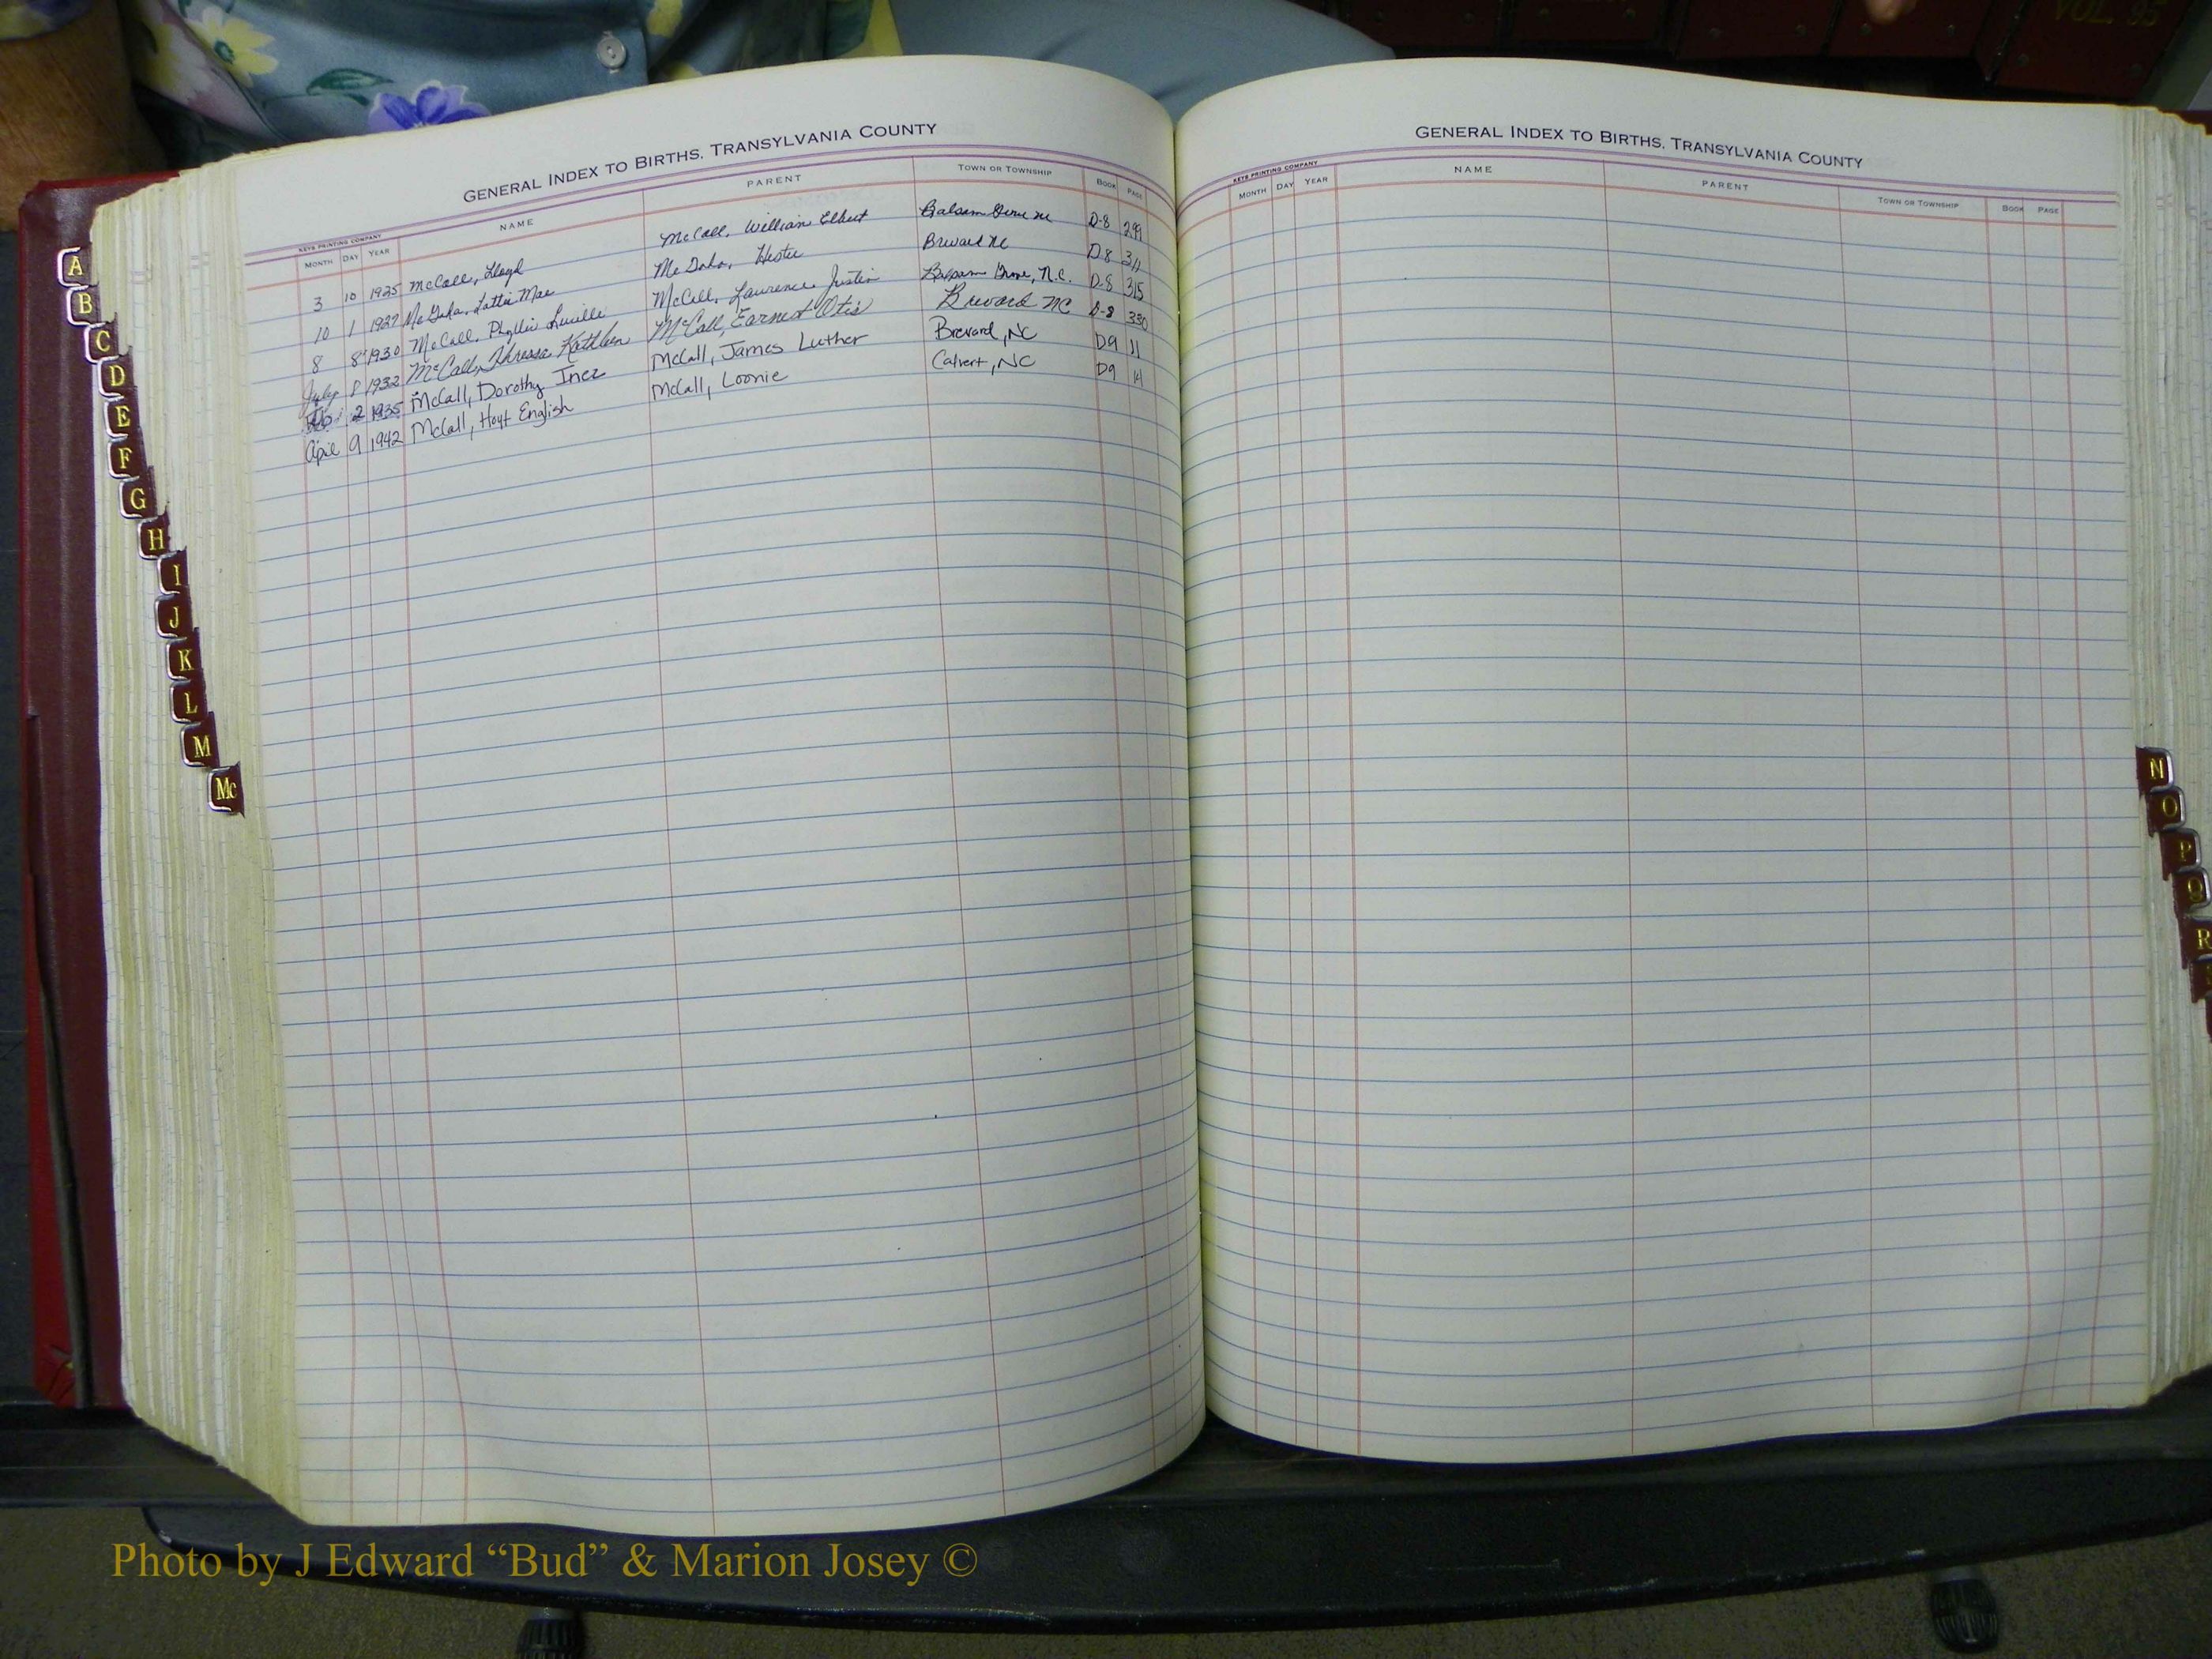 VOL. 95
GENERAL INDEX TO BIRTHS, TRANSYLVANIA COUNTY
KEYS PRINTING COMPANY
MONTH DAY YEAR NAME PARENT TOWN OR TOWNSHIP BOOK PAGE
3 10 1925 McCall, Lloyd McCall, William Elbert Balsam Grove NC D-8 299
10 1 1927 McGaha, Lottie Mae McGaha, Hester Brevard NC D-8 311
8 8 1930 McCall, Phyllis Lucille McCall, Lawrence Justin Balsam Grove, N.C. D-8 315
July 8 1932 McCall, Kathleen McCall, Earnest Otis Brevard NC D-8 330
Feb 2 1935 McCall, Dorothy Inez McCall, James Luther Brevard, NC D9 11
April 9 1942 McCall, Hoyt English McCall, Loonie Calvert, NC D9 14
A
B
C
D
E
F
G
H
I
J
K
L
M
Mc
GENERAL INDEX TO BIRTHS, TRANSYLVANIA COUNTY
KEYS PRINTING COMPANY
MONTH DAY YEAR NAME PARENT TOWN OR TOWNSHIP BOOK PAGE
N
O
P
Q
R
Photo by J Edward “Bud” & Marion Josey ©